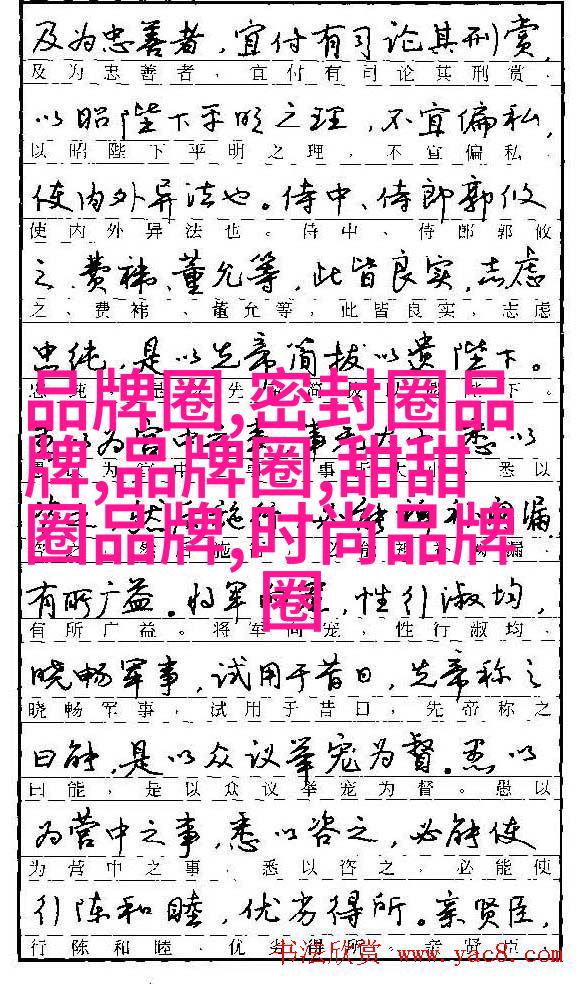 及为忠善者，宜付有司论其刑赏，
及为忠善者，宜付有司论其刑赏，
以昭陛下平明之理，不宜偏私，
以昭陛下平明之理，不宜偏私，
使内外异法也。侍中、侍郎郭攸
使内外异法也。侍中、侍郎郭攸
之、费祎、董允等，此皆良实，志虑
之、费祎、董允等，此皆良实，志虑
忠纯，是以先帝简拔以遗陛下。
忠纯，是以先帝简拔以遗陛下。
品牌圈,密封圈品
以为宫中之事，事无大小，悉以
以为宫中之事，事无大小，悉以
牌,品牌圈,甜甜
然后施行，漏
然后施行，漏
圈品牌,时尚品牌
有所广益。将军向宠，性行淑均，
有所广益。将军向宠，性行淑均，
圈
晓畅军事，试用于昔日，先帝称之
晓畅军事，试用于昔日，先帝称之
曰能，是以众议举宠为督。愚以
曰能，是以众议举宠为督。愚以
为营中之事，悉以咨之，必能使
为营中之事，悉以咨之，必能使
行陈和睦，优劣得所。亲贤臣，
行陈和睦，优劣得所。亲贤臣，
书法欣赏 www.yac8.com